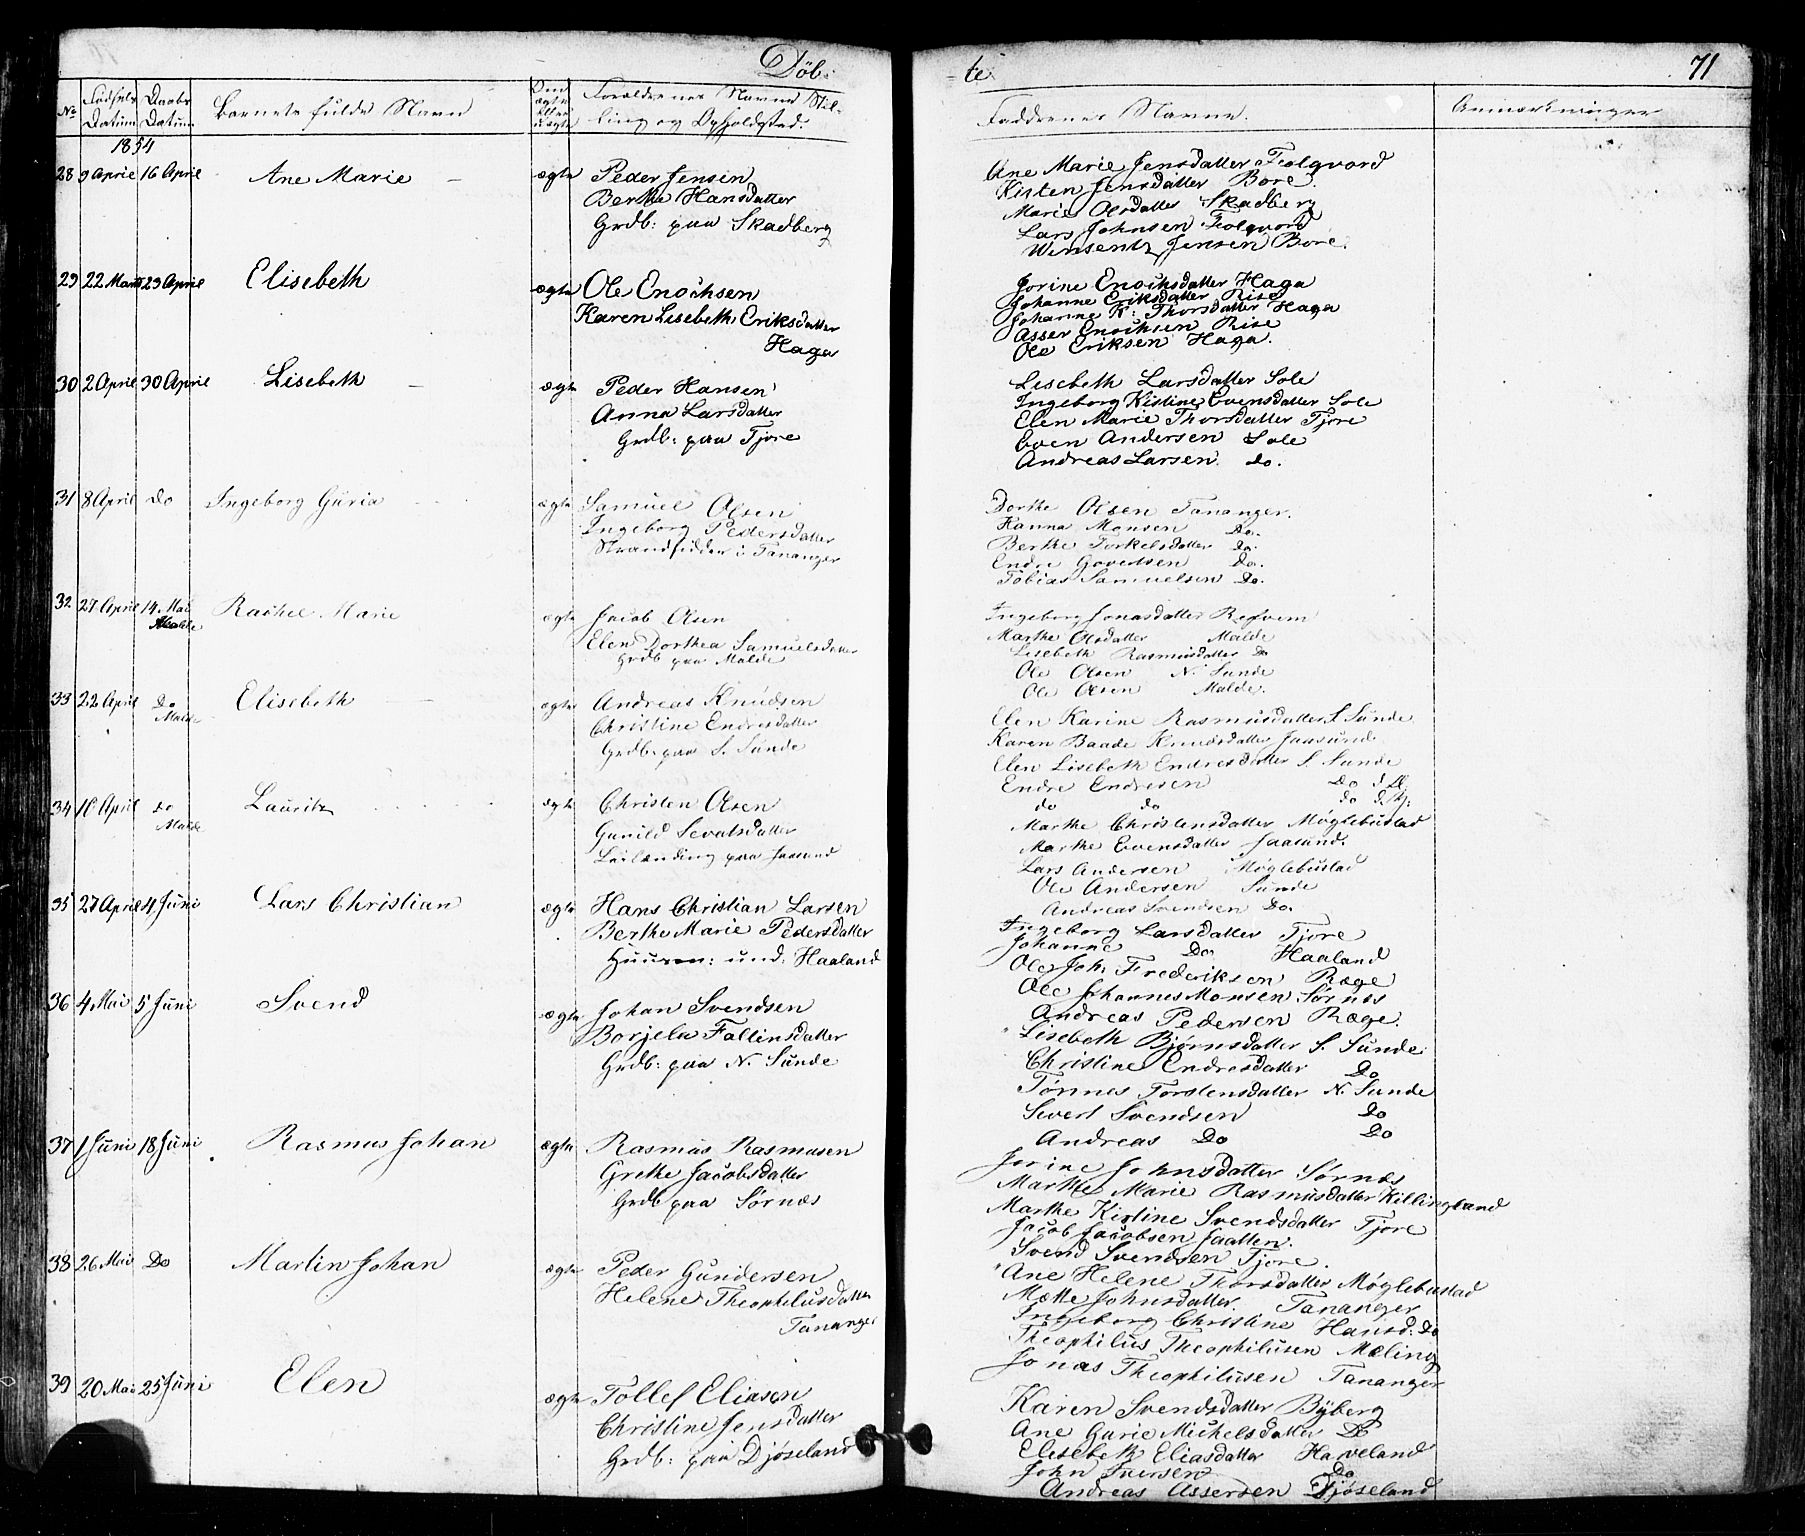 Døb-
№ Fødsels Datum Daabs Datum Barnets fulde Navn Om ægte eller uægte Forældrenes Navne Stil-
ling og Opholdsted.
1854
28 9 April 16 April Ane Marie ægte Peder Jensen
Berthe Hansdatter
Grdb: paa Skadberg
29 22 Marts 23 April Elisebeth ægte Ole Enochsen
Karen Lisebeth Eriksdatter
Haga
30 2 April 30 April Lisebeth ægte Peder Hansen
Anna Larsdatter
Grdb: paa Tjore
31 8 April Do Ingeborg Guria ægte Samuel Olsen
Ingeborg Pedersdatter
Strandsidder i Tananger
32 27 April 14 Mai Malde Rachel Marie ægte Jacob Olsen
Elen Dorthea Samuelsdatter
Grdb paa Malde
33 22 April Do Malde Elisebeth ægte Andreas Knudsen
Christine Endresdatter
Grdb. paa S. Sunde
34 10 April Do Malde Lauritz ægte Christen Olsen
Gunild Sevatsdatter
Leilænding paa Jaasund
35 27 April 4 Juni Lars Christian ægte Hans Christian Larsen
Berthe Marie Pedersdatter
Huusm: und: Haaland
36 4 Mai 5 Juni Svend ægte Johan Svendsen
Borjela Fallinsdatter
Grdb: paa N. Sunde
37 1 Juni 18 Juni Rasmus Johan ægte Rasmus Rasmusen
Grethe Jacobsdatter
Grdb paa Sørnæs
38 26 Mai Do Martin Johan ægte Peder Gundersen
Helene Theophilusdatter
Tananger
39 20 Mai 25 Juni Elen ægte Tollef Eliasen
Christine Jensdatter
Grdb: paa Djøseland
te 71
Faddernes Navne. Anmærkninger
Ane Marie Jensdatter Folqvord
Kisten Jensdatter Bore.
Marie Olsdatter Skadberg
Lars Johnsen Folqvord
Winsentz Jensen Bore.
Jorine Enochsdatter Haga
Johanne Eriksdatter Rise
Johanne K: Thorsdatter Haga
Asser Enochsen Rise
Ole Eriksen Haga.
Lisebeth Larsdatter Sole
Ingeborg Kistine Evensdatter Sole
Elen Marie Thorsdatter Tjore
Even Andersen Sole
Andreas Larsen. Do.
Dorthe Olsen Tananger.
Hanna Monsen Do.
Berthe Torkelsdatter Do.
Endre Govertsen Do.
Tobias Samuelsen Do.
Ingeborg Jonasdatter Refvem
Marthe Olsdatter Malde
Lisebeth Rasmusdatter Do
Ole Olsen N. Sunde
Ole Olsen Malde.
Elen Karine Rasmusdatter S. Sunde
Karen Baade Knudsdatter Jaasund
Elen Lisebeth Endresdatter S. Sunde
Endre Endresen Do
do do do
Marthe Christensdatter Møglebustad
Marthe Evensdatter Jaasund.
Lars Andersen Møglebustad
Ole Andersen Sunde
Andreas Svendsen Do.
Ingeborg Larsdatter Tjore
Johanne Do Haaland
Ole Joh: Frederiksen Ræge
Ole Johannes Monsen Sørnæs
Andreas Pedersen Ræge.
Lisebeth Bjørnsdatter S. Sunde
Christine Endresdatter Do
Tønnes Torstensdatter N. Sunde
Sivert Svendsen Do
Andreas Do Do
Jorine Johnsdatter Sørnæs
Marthe Marie Rasmusdatter Killingland
Marthe Kistine Svendsdatter Tjore
Jacob Jacobsen Jaatten.
Svend Svendsen Tjore.
Ane Helene Thorsdatter Møglebustad
Mette Johnsdatter. Tananger
Ingeborg Christine Hansd: Do
Theophilus Theophilusen Meling
Jonas Theophilusen Tananger
Karen Svendsdatter Byberg
Ane Gurie Michelsdatter Do
Elisebeth Eliasdatter Harveland
John Iversen Do
Andreas Assersen Djøseland